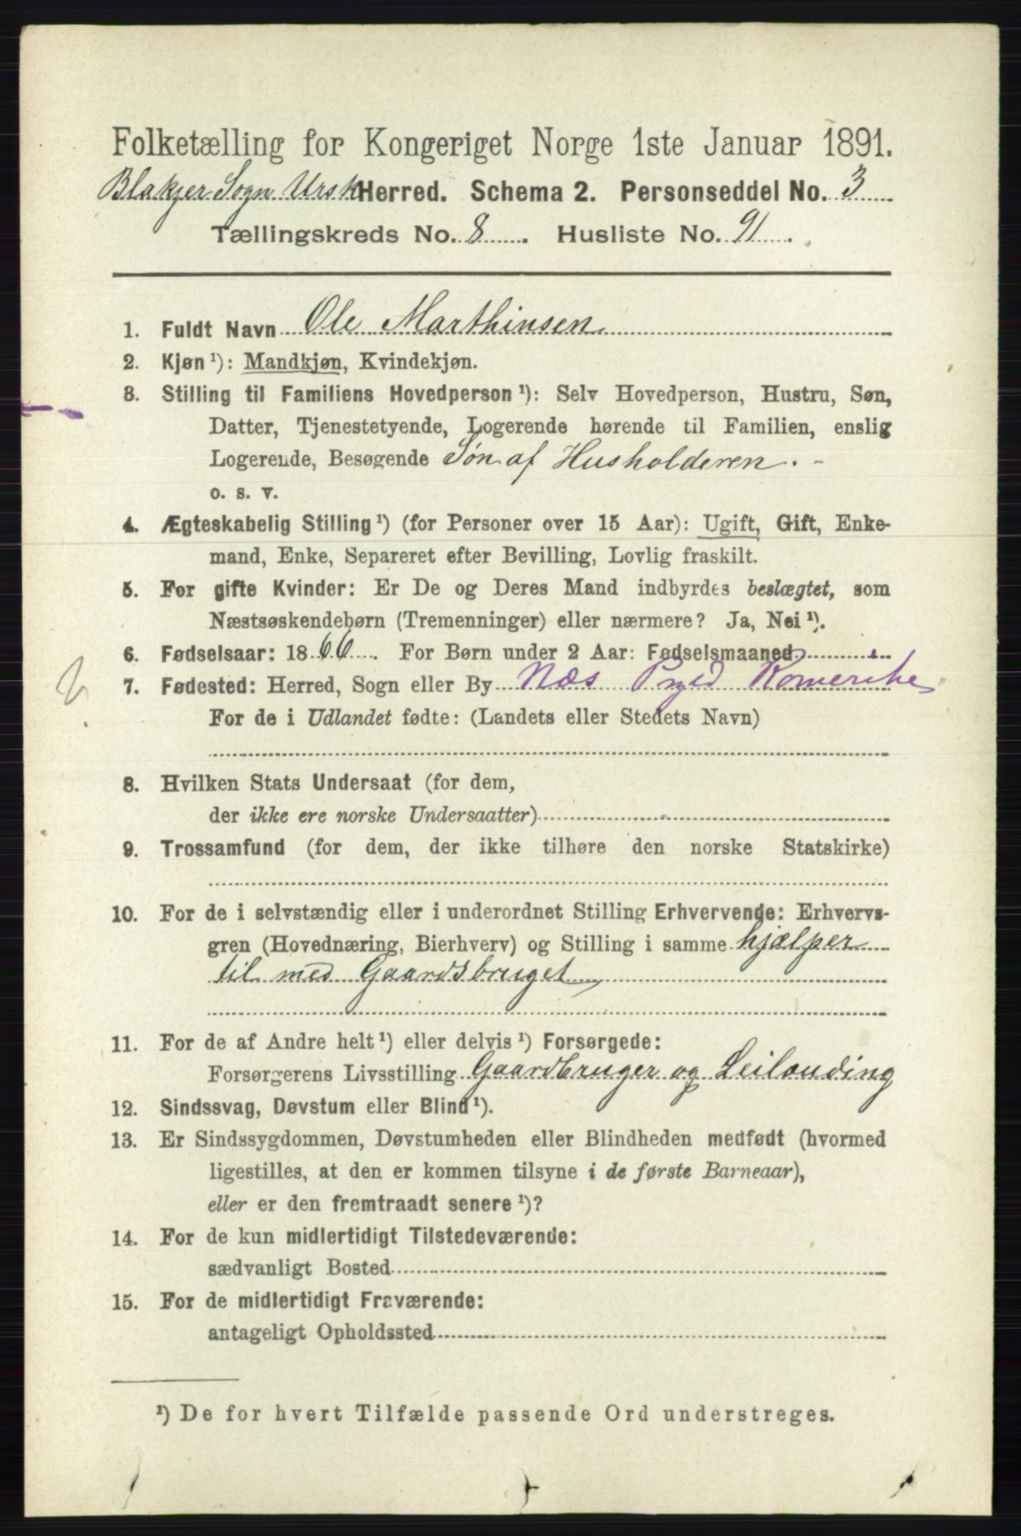 Folketælling for Kongeriget Norge 1ste Januar 1891.
Blakjer Sogn Ursk Herred. Schema 2. Personseddel No. 3
Tællingskreds No. 8. Husliste No. 91.
1. Fuldt Navn Ole Marthinsen
2. Kjøn ¹): Mandkjøn, Kvindekjøn.
3. Stilling til Familiens Hovedperson ¹): Selv Hovedperson, Hustru, Søn,
Datter, Tjenestetyende, Logerende hørende til Familien, enslig
Logerende, Besøgende Søn af Husholderen. -
o. s. v.
4. Ægteskabelig Stilling ¹) (for Personer over 15 Aar): Ugift, Gift, Enke-
mand, Enke, Separeret efter Bevilling, Lovlig fraskilt.
5. For gifte Kvinder: Er De og Deres Mand indbyrdes beslægtet, som
Næstsøskendebørn (Tremenninger) eller nærmere? Ja, Nei ¹).
6. Fødselsaar: 1866. For Børn under 2 Aar: Fødselsmaaned
7. Fødested: Herred, Sogn eller By Næs Prgjd Romerike
For de i Udlandet fødte: (Landets eller Stedets Navn)
8. Hvilken Stats Undersaat (for dem,
der ikke ere norske Undersaatter)
9. Trossamfund (for dem, der ikke tilhøre den norske Statskirke)
10. For de i selvstændig eller i underordnet Stilling Erhvervende: Erhvervs-
gren (Hovednæring, Bierhverv) og Stilling i samme hjælper
til med Gaardsbruget
11. For de af Andre helt ¹) eller delvis ¹) Forsørgede:
Forsørgerens Livsstilling Gaardbruger og Leilænding
12. Sindssvag, Døvstum eller Blind ¹).
13. Er Sindssygdommen, Døvstumheden eller Blindheden medfødt (hvormed
ligestilles, at den er kommen tilsyne i de første Barneaar),
eller er den fremtraadt senere ¹)?
14. For de kun midlertidigt Tilstedeværende:
sædvanligt Bosted
15. For de midlertidigt Fraværende:
antageligt Opholdssted
¹) De for hvert Tilfælde passende Ord understreges.